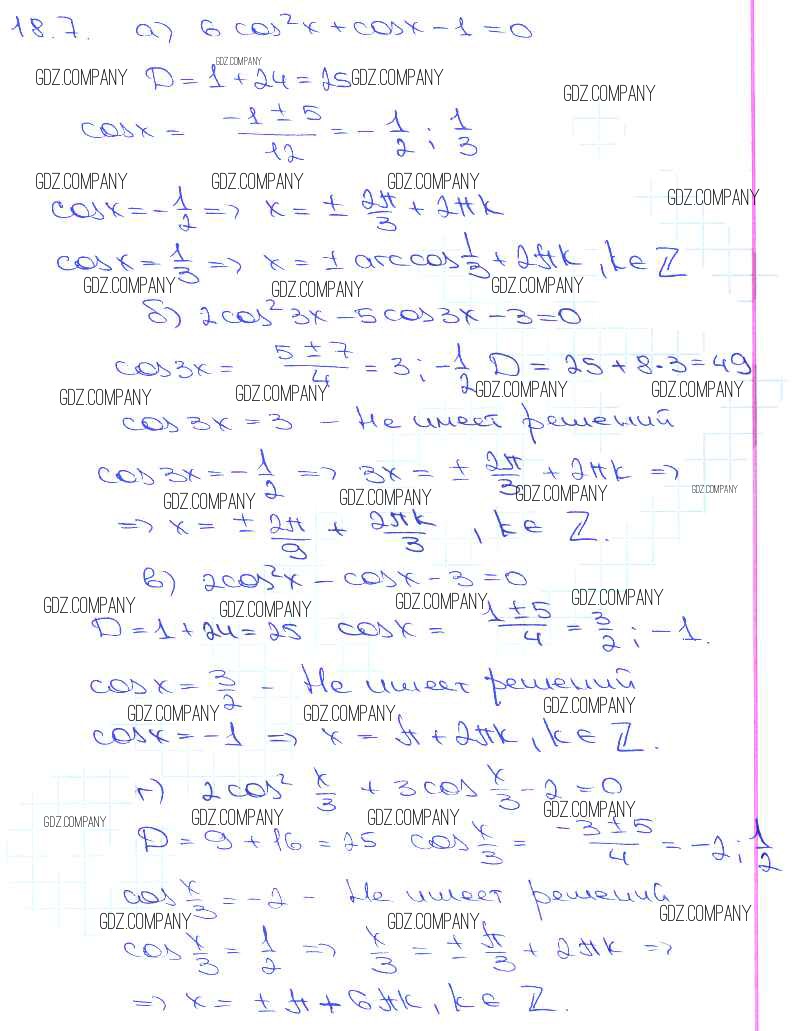 18.7. а) 6 cos²x + cosx - 1 = 0
GDZ.COMPANY
GDZ.COMPANY D = 1 + 24 = 25 GDZ.COMPANY
GDZ.COMPANY
cosx = (-1 ± 5)/12 = - 1/2 ; 1/3
GDZ.COMPANY GDZ.COMPANY GDZ.COMPANY
GDZ.COMPANY
cosx = - 1/2 => x = ± 2π/3 + 2πk
cosx = 1/3 => x = ± arccos 1/3 + 2πk , k ∈ Z
GDZ.COMPANY GDZ.COMPANY GDZ.COMPANY
б) 2cos² 3x - 5cos 3x - 3 = 0
cos3x = (5 ± 7)/4 = 3 ; - 1/2 D = 25 + 8·3 = 49
GDZ.COMPANY GDZ.COMPANY GDZ.COMPANY GDZ.COMPANY
cos 3x = 3 - Не имеет решений
cos 3x = - 1/2 => 3x = ± 2π/3 + 2πk =>
GDZ.COMPANY GDZ.COMPANY GDZ.COMPANY GDZ.COMPANY
=> x = ± 2π/9 + 2πk/3 , k ∈ Z.
в) 2cos²x - cosx - 3 = 0
GDZ.COMPANY GDZ.COMPANY GDZ.COMPANY GDZ.COMPANY
D = 1 + 24 = 25 cosx = (1 ± 5)/4 = 3/2 ; -1.
cosx = 3/2 - Не имеет решений
GDZ.COMPANY GDZ.COMPANY GDZ.COMPANY
cosx = -1 => x = π + 2πk , k ∈ Z.
г) 2cos² x/3 + 3cos x/3 - 2 = 0
GDZ.COMPANY GDZ.COMPANY GDZ.COMPANY GDZ.COMPANY
D = 9 + 16 = 25 cos x/3 = (-3 ± 5)/4 = -2 ; 1/2
cos x/3 = -2 - Не имеет решений
GDZ.COMPANY GDZ.COMPANY GDZ.COMPANY
cos x/3 = 1/2 => x/3 = ± π/3 + 2πk =>
=> x = ± π + 6πk , k ∈ Z.